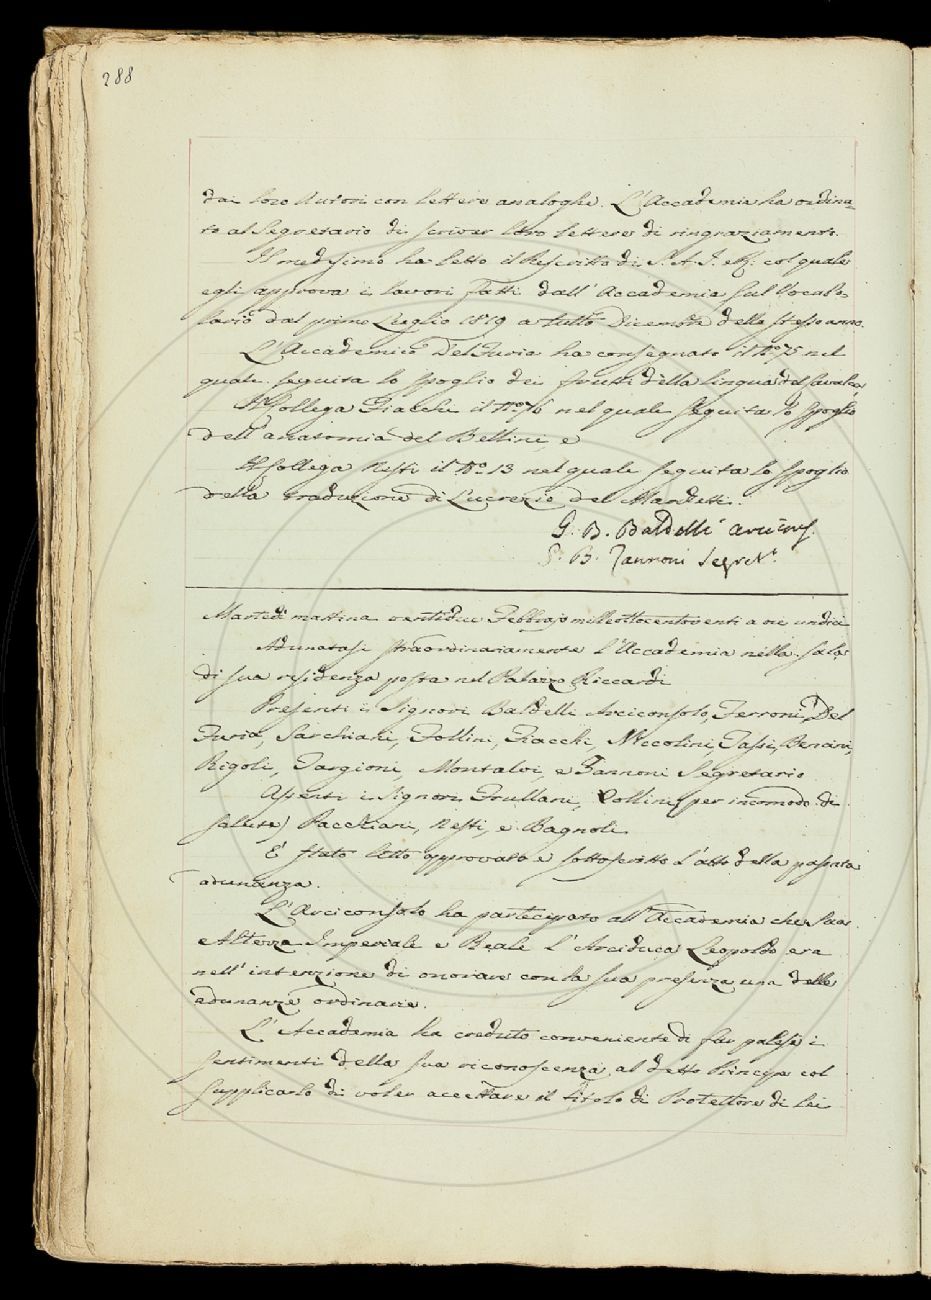 288
dai loro Autori con lettere analoghe. L'Accademia ha ordina=
to al Segretario di scriver loro lettere di ringraziamento.
Il medesimo ha letto il Rescritto di S. A. I. e R. col quale
egli approva i lavori fatti dall'Accademia sul Vocabo-
lario dal primo Luglio 1819 a tutto Dicembre dello stesso anno.
L'Accademico Del Furia ha consegnato il N.o 75 nel
quale seguita lo spoglio dei frutti della lingua del Cavalca,
Il Collega Fiacchi il N.o 76 nel quale seguita lo spoglio
dell'anatomia del Bellini, e
Il Collega Nesti il N.o 13 nel quale seguita lo spoglio
della traduzione di Lucrezio del Marchetti.
G. B. Baldelli
G. B. Zannoni Segret.
Martedì mattina ventidue Febbrajo milleottocentoventi a ore undici
Adunatasi straordinariamente l'Accademia nella sala
di sua residenza posta nel Palazzo Riccardi
Presenti i Signori Baldelli Arciconsolo, Ferroni, Del
Furia, Sarchiani, Follini, Fiacchi, Niccolini, Tassi, Bencini,
Rigoli, Targioni, Montalvi, e Zannoni Segretario
Assenti i Signori Frullani, Collini (per incomodo di
salute) Pacchiani, Nesti, e Bagnoli.
E' stato letto approvato e sottoscritto l'atto della passata
adunanza.
L'Arciconsolo ha partecipato all'Accademia che Sua
Altezza Imperiale e Reale l'Arciduca Leopoldo era
nell'intenzione di onorare con la sua presenza una delle
adunanze ordinarie.
L'Accademia ha creduto conveniente di far palesi i
sentimenti della sua riconoscenza al detto Principe col
supplicarlo di voler accettare il titolo di Protettore di lei